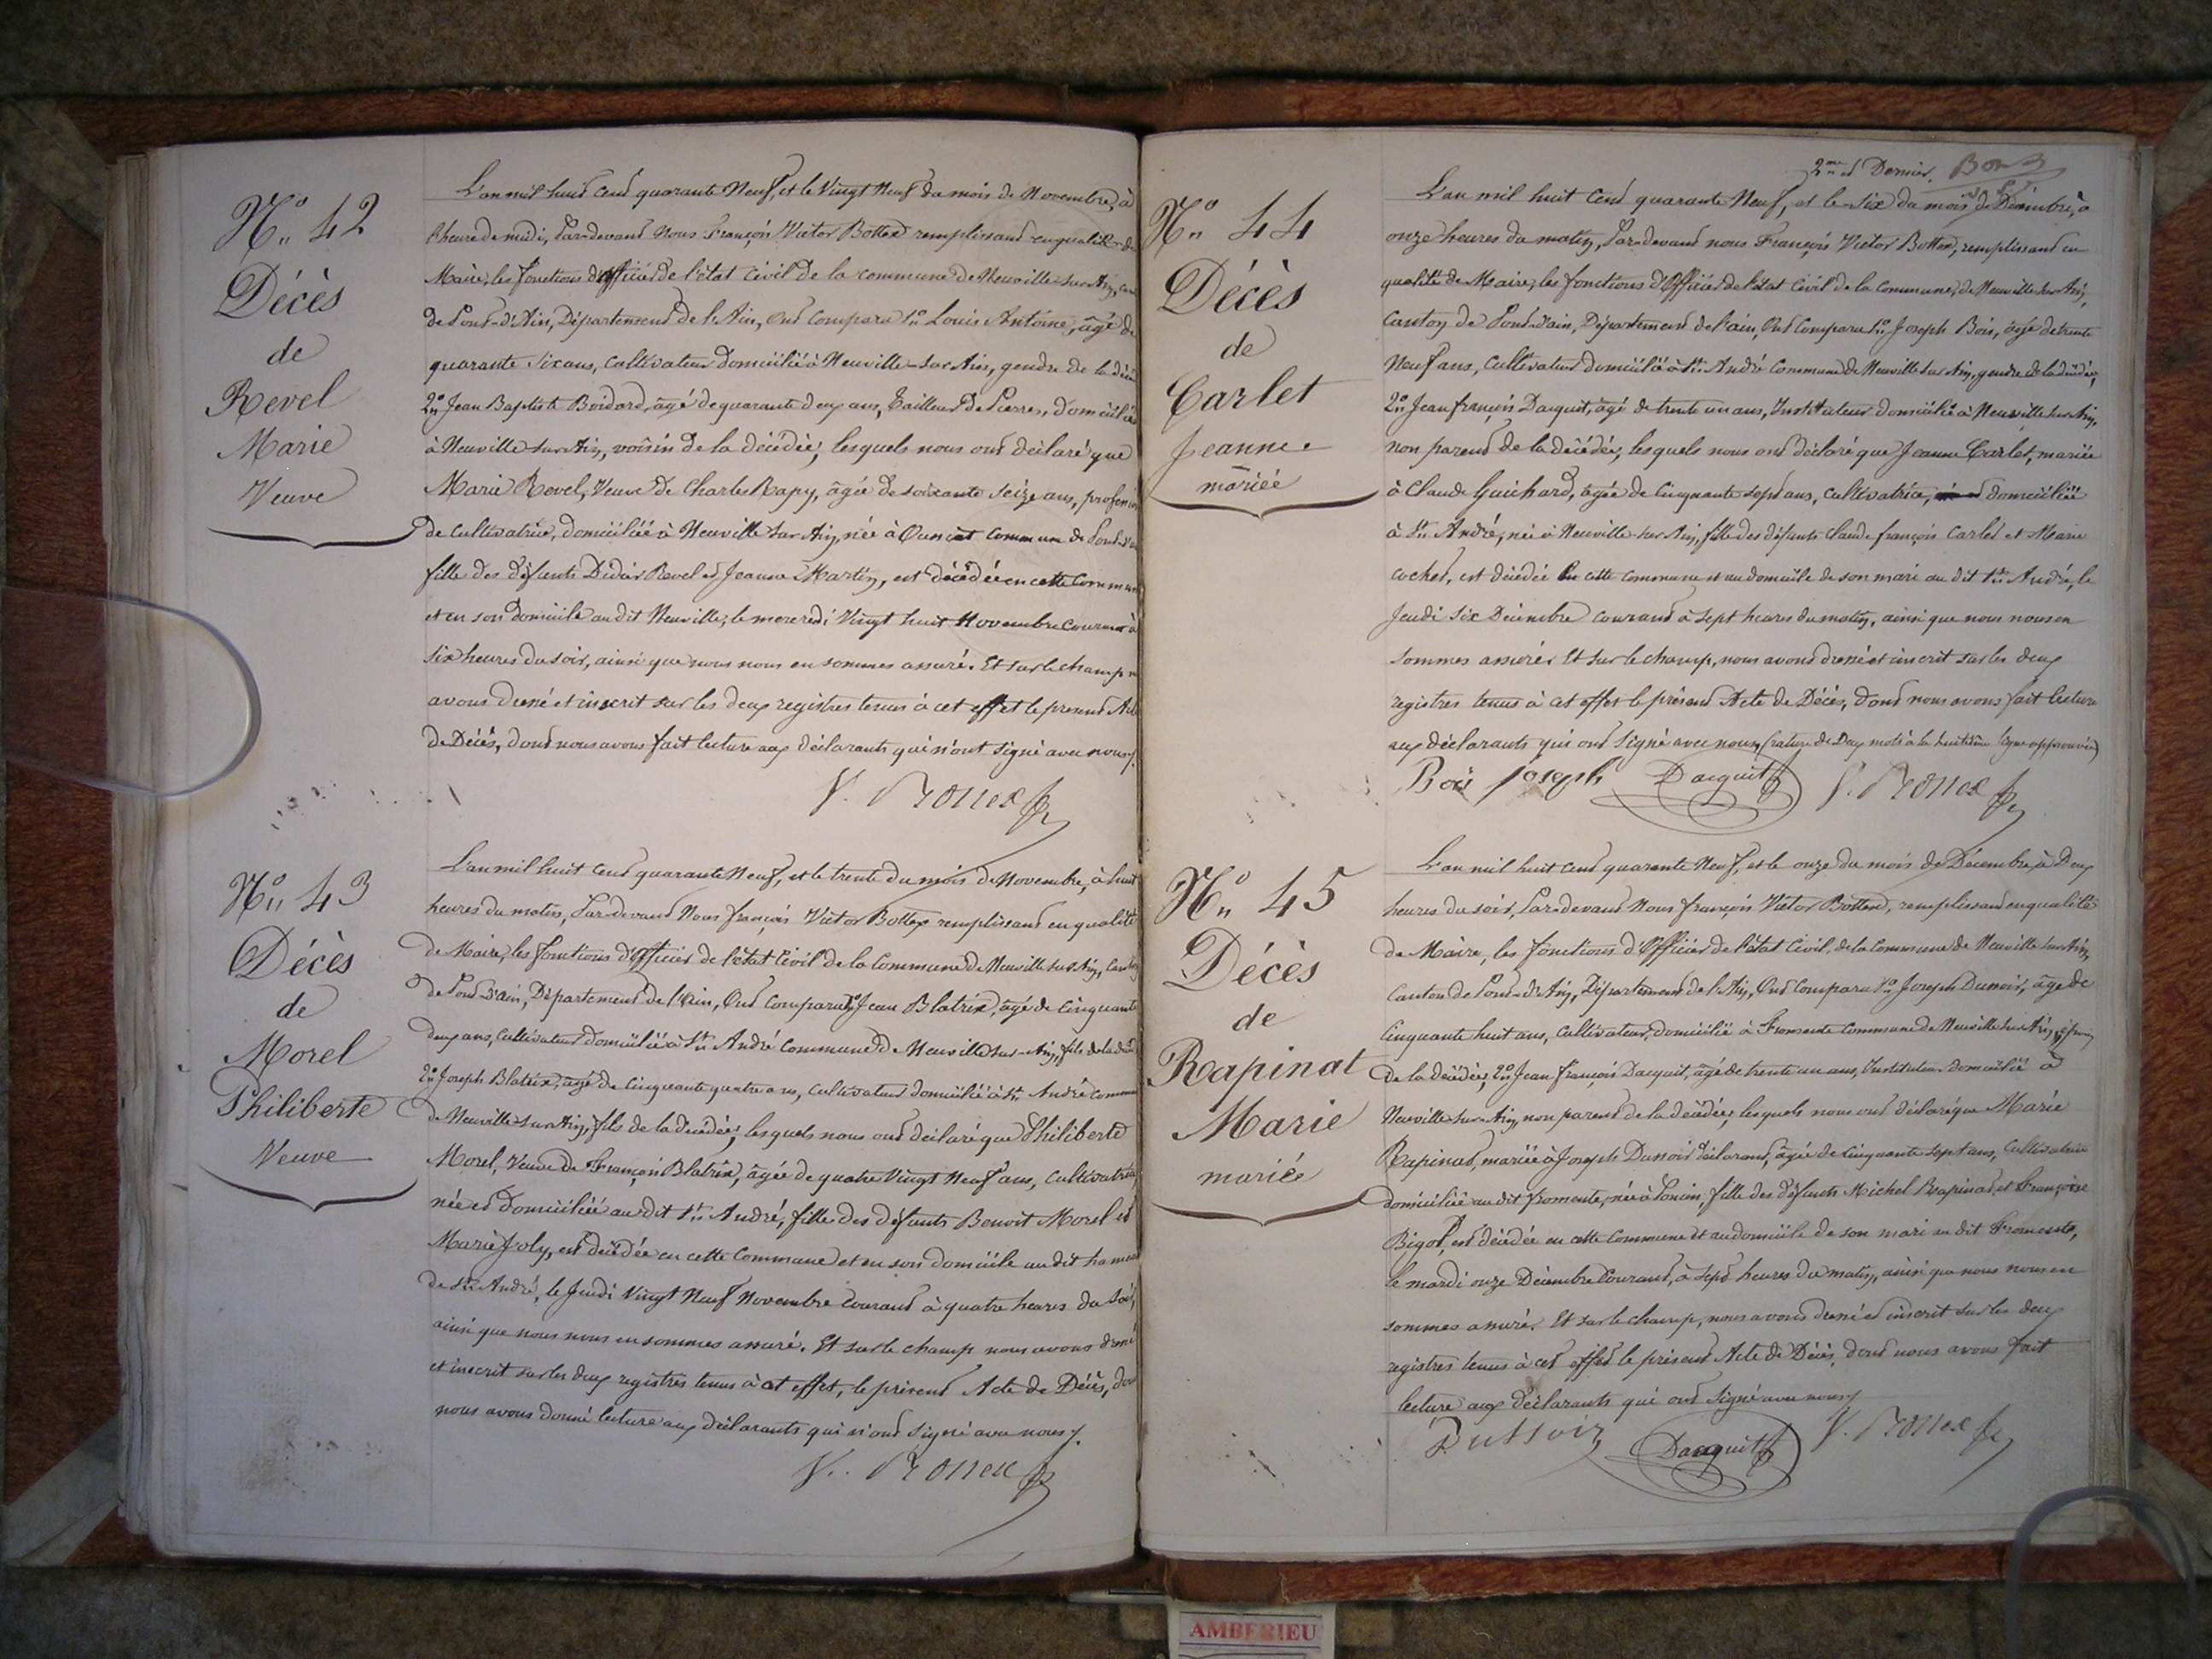 N° 42
Décès
de
Revel
Marie
Veuve
L'an mil huit cent quarante Neuf, et le Vingt Neuf du mois de Novembre, à
l'heure de midi, Par-devant Nous François Victor Bottex remplissant en qualité de
Maire, les fonctions d'officier de l'état civil de la commune de Neuville-sur-Ain,
de Pont-d'Ain, Département de l'Ain, Ont comparu 1° Louis Antoine, âgé de
quarante six ans, cultivateur domicilié à Neuville-sur-Ain, gendre de la
2° Jean Baptiste Boidard, âgé de quarante deux ans, Tailleur de Pierres, domicilié
à Neuville-sur-Ain, voisin de la décédée, lesquels nous ont déclaré que
Marie Revel, Veuve de Charles Rapy, âgée de soixante seize ans,
de cultivatrice, domiciliée à Neuville sur Ain, née à Oussiat commune de
fille des défunts Didier Revel et Jeanne Martin, est décédée en cette
et en son domicile au dit Neuville, le mercredi Vingt huit Novembre courant à
six heures du soir, ainsi que nous nous en sommes assuré. Et sur le champ
avons dressé et inscrit sur les deux registres tenus à cet effet le présent
de Décès, dont nous avons fait lecture aux déclarants qui n'ont signé avec nous.
V. Bottex
N° 43
Décès
de
Morel
Philiberte
Veuve
L'an mil huit cent quarante Neuf, et le trente du mois de Novembre, à huit
heures du matin, Par-devant Nous françois Victor Bottex remplissant en qualité
de Maire, les fonctions d'officier de l'état Civil de la Commune de Neuville sur Ain,
de Pont d'Ain, Département de l'Ain, Ont comparu 1° Jean Blatrix, âgé de Cinquante
deux ans, Cultivateur domicilié à St André Commune de Neuville sur-Ain, fils de la
2° Joseph Blatrix, âgé de Cinquante quatre ans, Cultivateur domicilié à St André
de Neuville-sur-Ain, fils de la décédée, lesquels nous ont déclaré que Philiberte
Morel, Veuve de François Blatrix, âgée de quatre Vingt Neuf ans,
née et domiciliée au dit St André, fille des défunts Benoit Morel et
Marie Joly, est décédée en cette Commune et en son domicile au dit
de St André, le Jeudi Vingt Neuf Novembre Courant à quatre heures du soir,
ainsi que nous nous en sommes assuré. Et sur le champ nous avons dressé
et inscrit sur les deux registres tenus à cet effet, le présent Acte de Décès,
nous avons donné lecture aux déclarants qui n'ont signé avec nous.
V. Bottex
2me et Dernier. Bon
N° 44
Décès
de
Carlet
Jeanne
mariée
L'an mil huit Cent quarante Neuf, et le six du mois de Décembre, à
onze heures du matin, Par-devant nous François Victor Bottex, remplissant en
qualité de Maire, les fonctions d'Officier de l'état Civil de la Commune, de Neuville sur Ain,
Canton de Pont-d'ain, Département de l'ain, Ont Comparu 1° Joseph Bois, âgé de trente
Neuf ans, Cultivateur domicilié à St André Commune de Neuville sur Ain, gendre de la décédée,
2° Jean françois Dacquit, âgé de trente un ans, Instituteur domicilié à Neuville sur Ain,
non parent de la décédée, lesquels nous ont déclaré que Jeanne Carlet, mariée
à Claude Guichard, âgée de Cinquante sept ans, Cultivatrice, domiciliée
à St André, née à Neuville-sur-Ain, fille des défunts Claude françois Carlet et Marie
cochet, est décédée en cette commune et au domicile de son mari au dit St André, le
Jeudi six Décembre Courant à sept heures du matin, ainsi que nous nous en
sommes assurés. Et sur le champ, nous avons dressé et inscrit sur les deux
registres tenus à cet effet le présent Acte de Décès, dont nous avons fait lecture
aux déclarants qui ont signé avec nous (rature de deux mots à la huitième ligne approuvée)
Bois Joseph Dacquit V. Bottex
N° 45
Décès
de
Rapinat
Marie
mariée
L'an mil huit cent quarante Neuf, et le onze du mois de Décembre, à Deux
heures du soir, Par-devant Nous françois Victor Bottex, remplissant en qualité
de Maire, les fonctions d'Officier de l'état Civil, de la Commune de Neuville sur Ain,
Canton de Pont-d'Ain, Département de l'Ain, Ont Comparu 1° Joseph Dunoir, âgé de
Cinquante huit ans, Cultivateur, domicilié à Fromente Commune de Neuville sur Ain, époux
de la décédée, 2° Jean François Dacquit, âgé de trente un ans, Instituteur domicilié à
Neuville-sur-Ain, non parent de la décédée, lesquels nous ont déclaré que Marie
Rapinat, mariée à Joseph Dunoir déclarant, âgée de Cinquante sept ans, Cultivatrice
domiciliée au dit fromente, née à Poncin, fille des défunts Michel Rapinat et Françoise
Bigot, est décédée en cette Commune et au domicile de son mari au dit Fromente,
le mardi onze Décembre Courant, à sept heures du matin, ainsi que nous nous en
sommes assurés. Et sur le champ, nous avons dressé et inscrit sur les deux
registres tenus à cet effet le présent Acte de Décès, dont nous avons fait
lecture aux déclarants qui ont signé avec nous
Dacquit V. Bottex
AMBERIEU